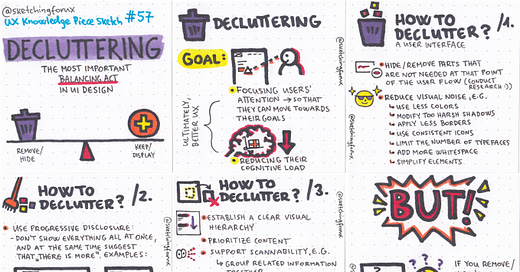 @sketchingforux
UX Knowledge Piece Sketch #57
DECLUTTERING
THE MOST IMPORTANT
BALANCING ACT
IN UI DESIGN
REMOVE/
HIDE
KEEP/
DISPLAY
DECLUTTERING
GOAL:
FOCUSING USERS'
ATTENTION → SO THAT
THEY CAN MOVE TOWARDS
THEIR GOALS
REDUCING THEIR
COGNITIVE LOAD
ULTIMATELY,
BETTER UX
@sketchingforux
HOW TO
DECLUTTER? /1.
A USER INTERFACE
HIDE/REMOVE PARTS THAT
ARE NOT NEEDED AT THAT POINT
OF THE USER FLOW (CONDUCT
RESEARCH :))
REDUCE VISUAL NOISE, E.G.
↳ USE LESS COLORS
↳ MODIFY TOO HARSH SHADOWS
↳ APPLY LESS BORDERS
↳ USE CONSISTENT ICONS
↳ LIMIT THE NUMBER OF TYPEFACES
↳ ADD MORE WHITESPACE
↳ SIMPLIFY ELEMENTS
@sketchingforux
HOW TO
DECLUTTER? /2.
USE PROGRESSIVE DISCLOSURE:
- DON'T SHOW EVERYTHING ALL AT ONCE,
AND AT THE SAME TIME SUGGEST
THAT "THERE IS MORE". EXAMPLES:
@sketchingforux
HOW TO
DECLUTTER? /3.
ESTABLISH A CLEAR VISUAL
HIERARCHY
PRIORITIZE CONTENT
SUPPORT SCANNABILITY, E.G.
↳ GROUP RELATED INFORMATION
@sketchingforux
BUT!
IF YOU REMOVE/